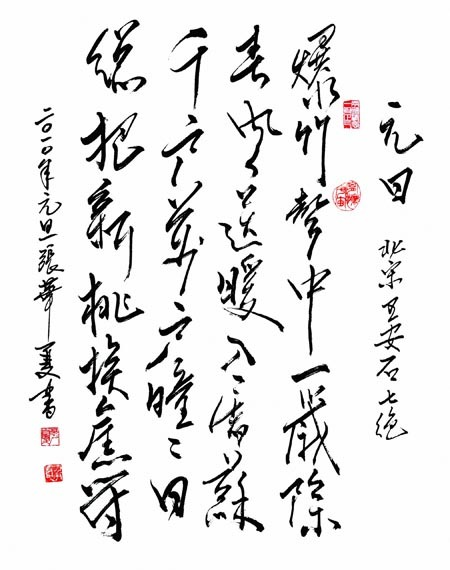 元日 北宋王安石七绝
爆竹聲中一歲除
春風送暖入屠蘇
千门萬户曈々日
總把新桃换舊符
二〇一〇年元旦張華夏書